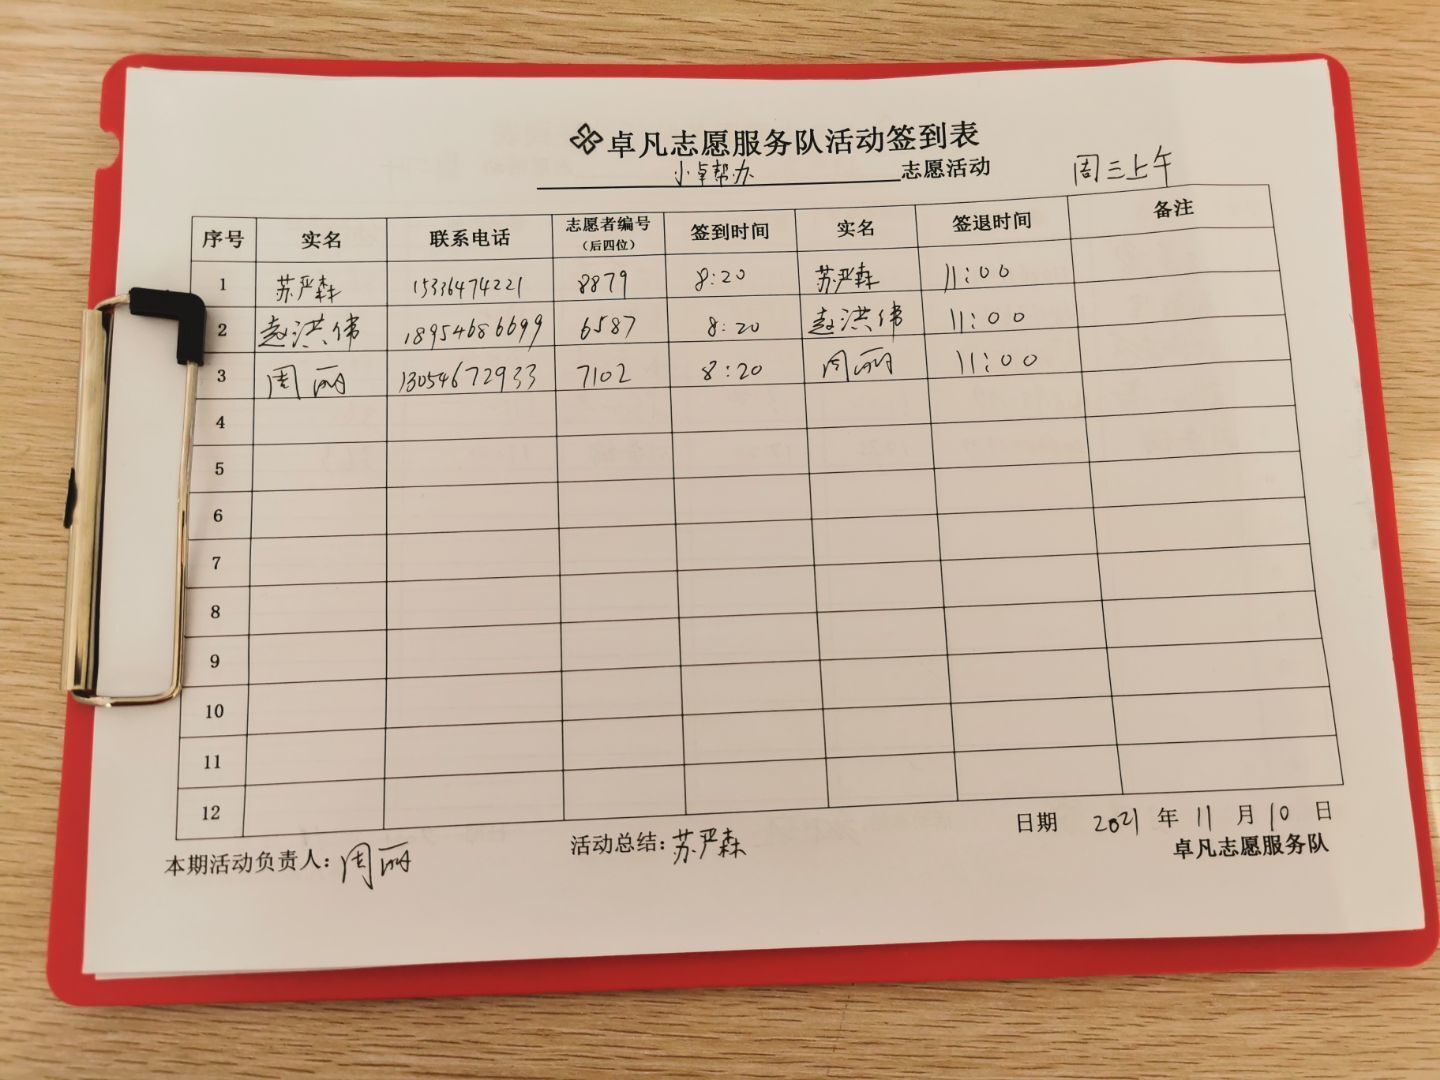 卓凡志愿服务队活动签到表
小卓帮办 志愿活动 周三上午
序号 实名 联系电话 志愿者编号（后四位） 签到时间 实名 签退时间 备注
1 苏严森 15336474221 8879 8:20 苏严森 11:00
2 赵洪伟 18954686699 6587 8:20 赵洪伟 11:00
3 周丽 13054672933 7102 8:20 周丽 11:00
4
5
6
7
8
9
10
11
12
本期活动负责人：周丽 活动总结：苏严森 日期 2021 年 11 月 10 日
卓凡志愿服务队